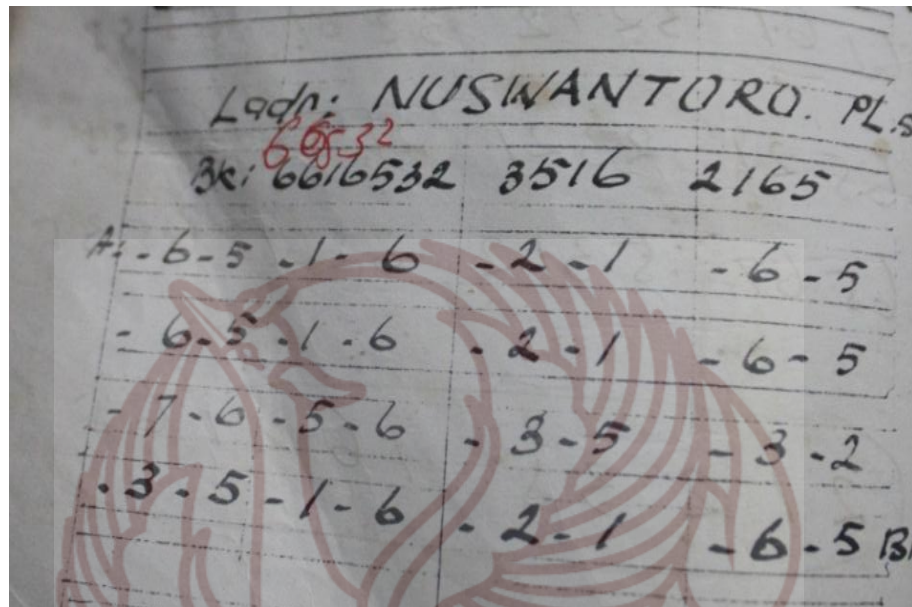 Ladr: NUSWANTORO. PL.s
66532
Bk: 6616532 3516 2165
A: -6-5 -1-6 -2-1 -6-5
-6-5-1-6 -2-1 -6-5
-7-6-5-6 -3-5 -3-2
-3-5-1-6 -2-1 -6-5 B